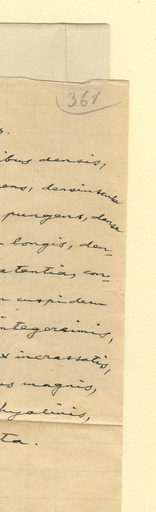 361
s.
ibus densis,
ens, densiuscule
pungens, dense
longis, den-
atentia, con-
cuspidem
integerrimis,
x incrassatis,
us magnis,
hyalinis,
ta.